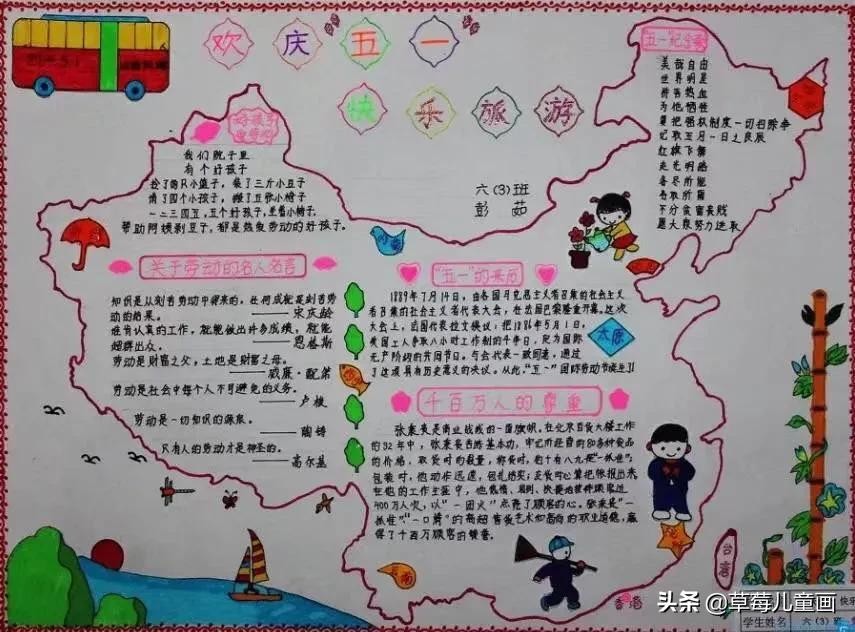 欢庆五一
快乐旅游
六(3)班
彭茹
"五一"纪念歌
美哉自由
世界明星
拚吾热血
为他牺牲
要把强权制度一切扫除净
记取五月一日之良辰
红旗飞舞
走光明路
各尽所能
各取所需
不分贫富贵贱
愿大家努力进取
我们院子里
有个好孩子
拾了两只小篮子,
一二三四五,五个好孩子,坐着小椅子.
帮助阿姨剥豆子,都是热爱劳动的好孩子。
关于劳动的名人名言
知识是从刻苦劳动中得来的,任何成就都是刻苦劳
动的结果。
——宋庆龄
谁肯认真的工作,就能做出许多成绩,就能
超群出众。
——恩格斯
劳动是财富之父,土地是财富之母。
——威廉·配第
劳动是社会中每个人不可避免的义务。
——卢梭
劳动是一切知识的源泉。
——陶铸
只有人的劳动才是神圣的。
——高尔基
"五一"的来历
1889年7月14日,由各国马克思主义者召集的社会主义
者代表大会,在法国巴黎隆重开幕。这次
大会上,法国代表拉文决议:把1886年5月1日,
美国工人争取八小时工作制的斗争日,定为国际
无产阶级的共同节日。与会代表一致同意,通过
了这项具有历史意义的决议。从此,"五一"国际劳动节诞生了!
太原
千百万人的尊重
张秉贵是商业战线的一面旗帜。在北京百货大楼工作
的32年中,张秉贵苦练基本功,牢记所经营的
的价格,
包装时,他动作迅速,包扎结实;
在他的工作生涯中,他热情、周到、
400万人次,以"一团火"点亮了顾客的心。张秉贵"一
抓准"、"一口清"的高超售货艺术和高尚的职业道德,赢
得了千百万顾客的赞誉。
云南
台湾
香港
头条 @草莓儿童画
学生姓名 六(3)班